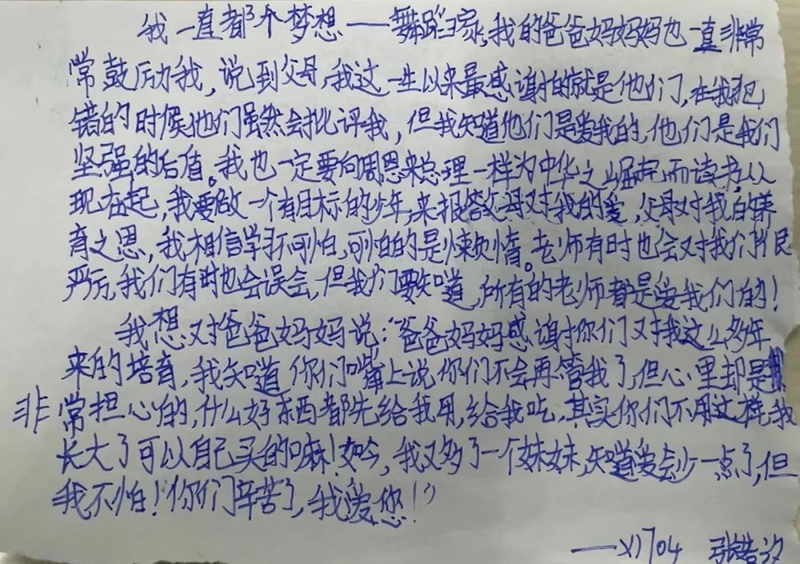 我一直都个梦想——舞蹈家,我的爸爸妈妈妈也一直非常
常鼓励我,说到父母,我这一生以来最感谢的就是他们,在我犯
错的时候他们虽然会批评我,但我知道他们是爱我的,他们是我们
坚强的后盾。我也一定要向周恩来总理一样为中华之崛起而读书,从
现在起,我要做一个有目标的少年,来报答父母对我的爱,父母对我的养
育之恩,我相信学不可怕,可怕的是懒惰。老师有时也会对我们很
严厉,我们有时也会误会,但我们要知道,所有的老师都是爱我们的!
我想对爸爸妈妈说:“爸爸妈妈感谢你们对我这么多年
来的培育,我知道你们嘴上说你们不会再管我了,但心里却是
非常担心的,什么好东西都先给我用,给我吃,其实你们不用这样,我
长大了可以自己买的嘛!如今,我又多了一个妹妹,知道爱会少一点了,但
我不怕!你们辛苦了,我爱您!”
——1704 张